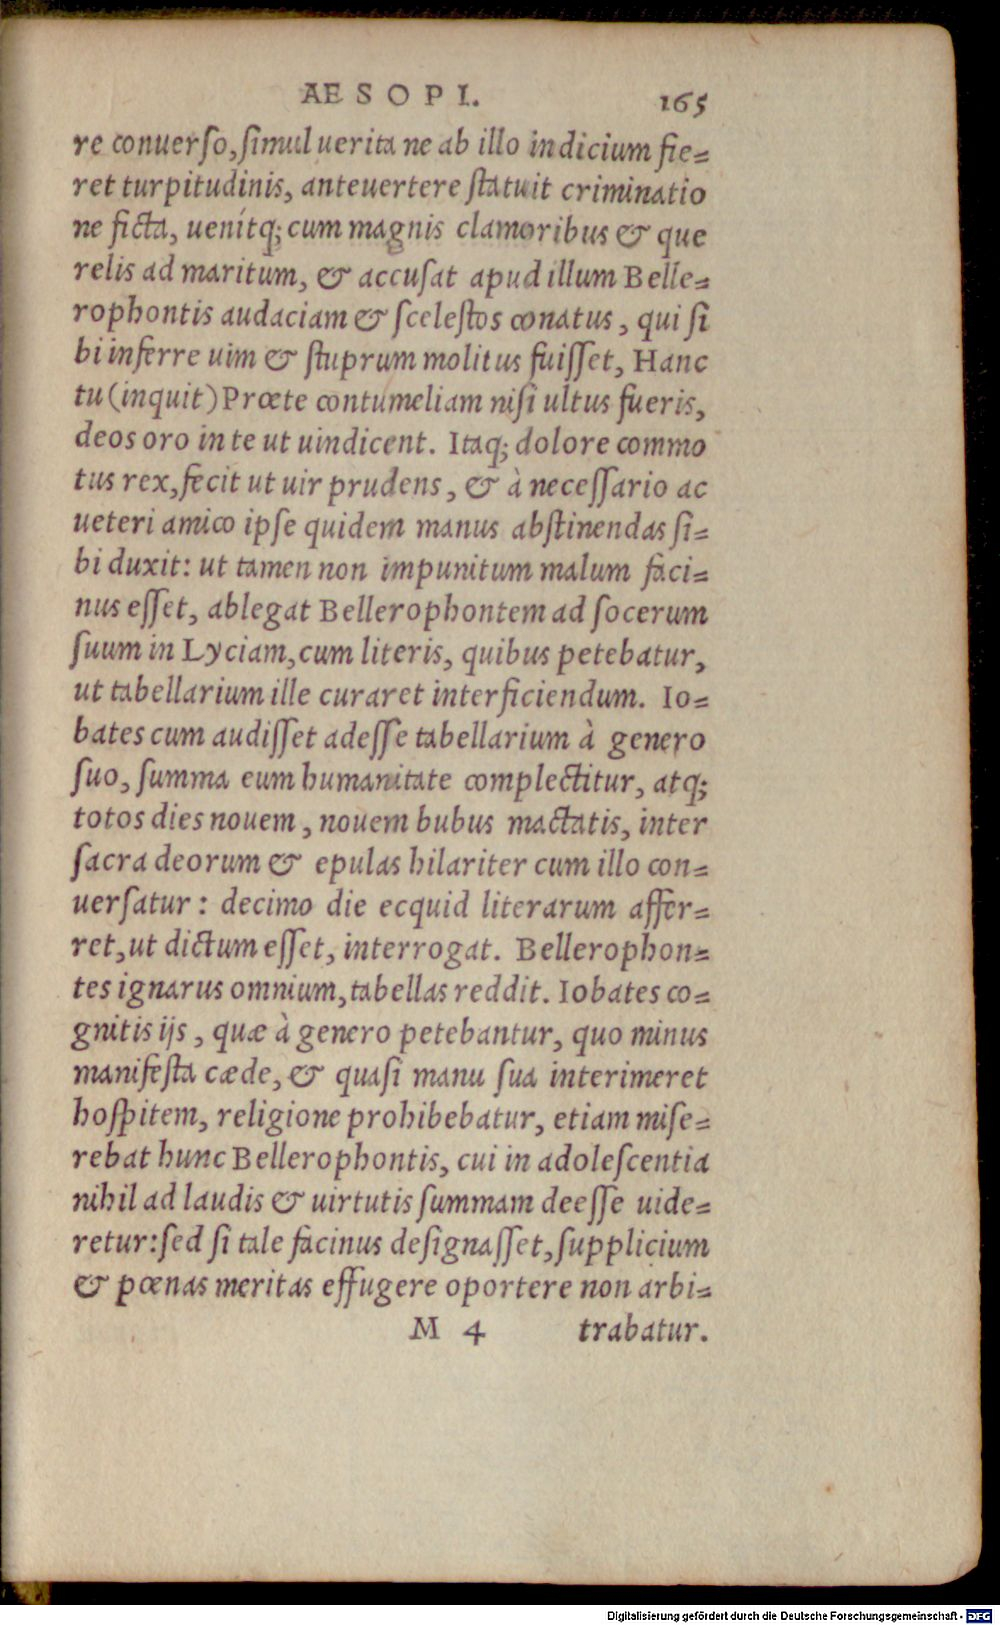 AESOPI. 165
re conuerso, simul uerita ne ab illo indicium fie=
ret turpitudinis, anteuertere statuit criminatio
ne ficta, uenítq; cum magnis clamoribus & que
relis ad maritum, & accusat apud illum Belle=
rophontis audaciam & scelestos conatus, qui si
bi inferre uim & stuprum molitus fuisset, Hanc
tu (inquit) Prœte contumeliam nisi ultus fueris,
deos oro in te ut uindicent. Itaq; dolore commo
tus rex, fecit ut uir prudens, & à necessario ac
ueteri amico ipse quidem manus abstinendas si=
bi duxit: ut tamen non impunitum malum faci=
nus esset, ablegat Bellerophontem ad socerum
suum in Lyciam, cum literis, quibus petebatur,
ut tabellarium ille curaret interficiendum. Io=
bates cum audisset adesse tabellarium à genero
suo, summa eum humanitate complectitur, atq;
totos dies nouem, nouem bubus mactatis, inter
sacra deorum & epulas hilariter cum illo con=
uersatur: decimo die ecquid literarum affer=
ret, ut dictum esset, interrogat. Bellerophon=
tes ignarus omnium, tabellas reddit. Iobates co=
gnitis ijs, quæ à genero petebantur, quo minus
manifesta cæde, & quasi manu sua interimeret
hospitem, religione prohibebatur, etiam mise=
rebat hunc Bellerophontis, cui in adolescentia
nihil ad laudis & uirtutis summam deesse uide=
retur: sed si tale facinus designasset, supplicium
& pœnas meritas effugere oportere non arbi=
M 4 trabatur.
Digitalisierung gefördert durch die Deutsche Forschungsgemeinschaft - DFG